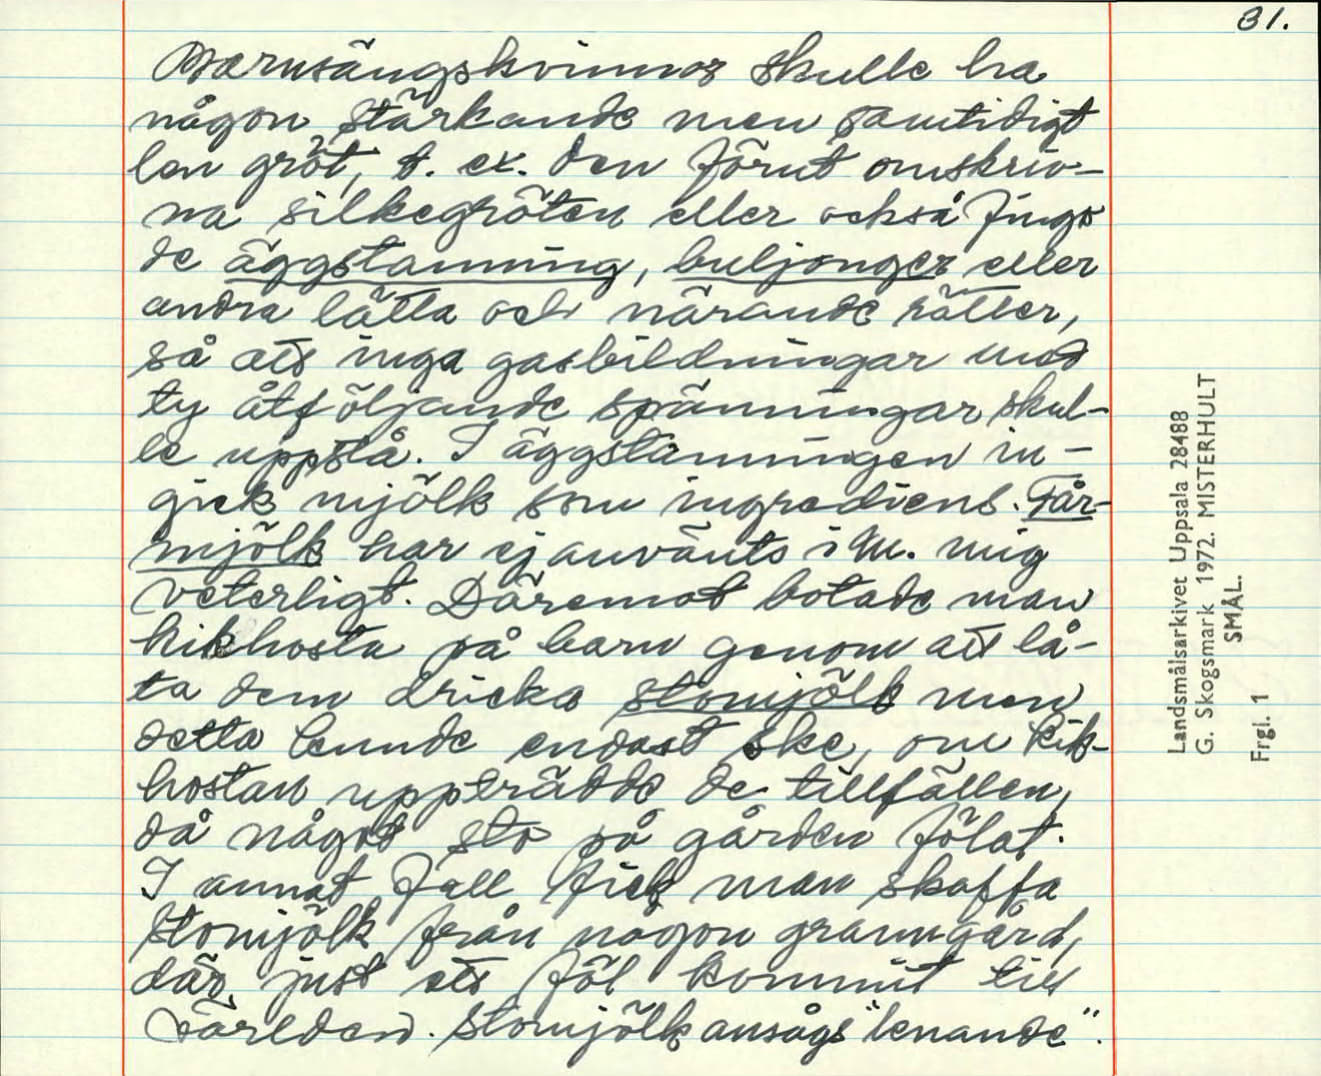 31.
Barnsängskvinnor skulle ha
någon stärkande men samtidigt
len gröt, t. ex. den förut omskriv-
na silkegröten eller också fingo
de äggstanning, buljonger eller
andra lätta och närande rätter,
så att inga gasbildningar med
ty åtföljande spänningar skul-
le uppstå. I äggstanningen in-
gick mjölk som ingrediens. Får-
mjölk har ej använts i M. mig
veterligt. Däremot botade man
kikhosta på barn genom att lå-
ta dem dricka stomjölk men
detta kunde endast ske, om kik-
hostan uppträdde de tillfällen,
då något sto på gården fölat.
I annat fall fick man skaffa
stomjölk från någon granngård,
där just ett föl kommit till
världen. Stomjölk ansågs "lenande".
Landsmålsarkivet Uppsala 28488
G. Skogsmark 1972. MISTERHULT
SMÅL.
Frgl. 1